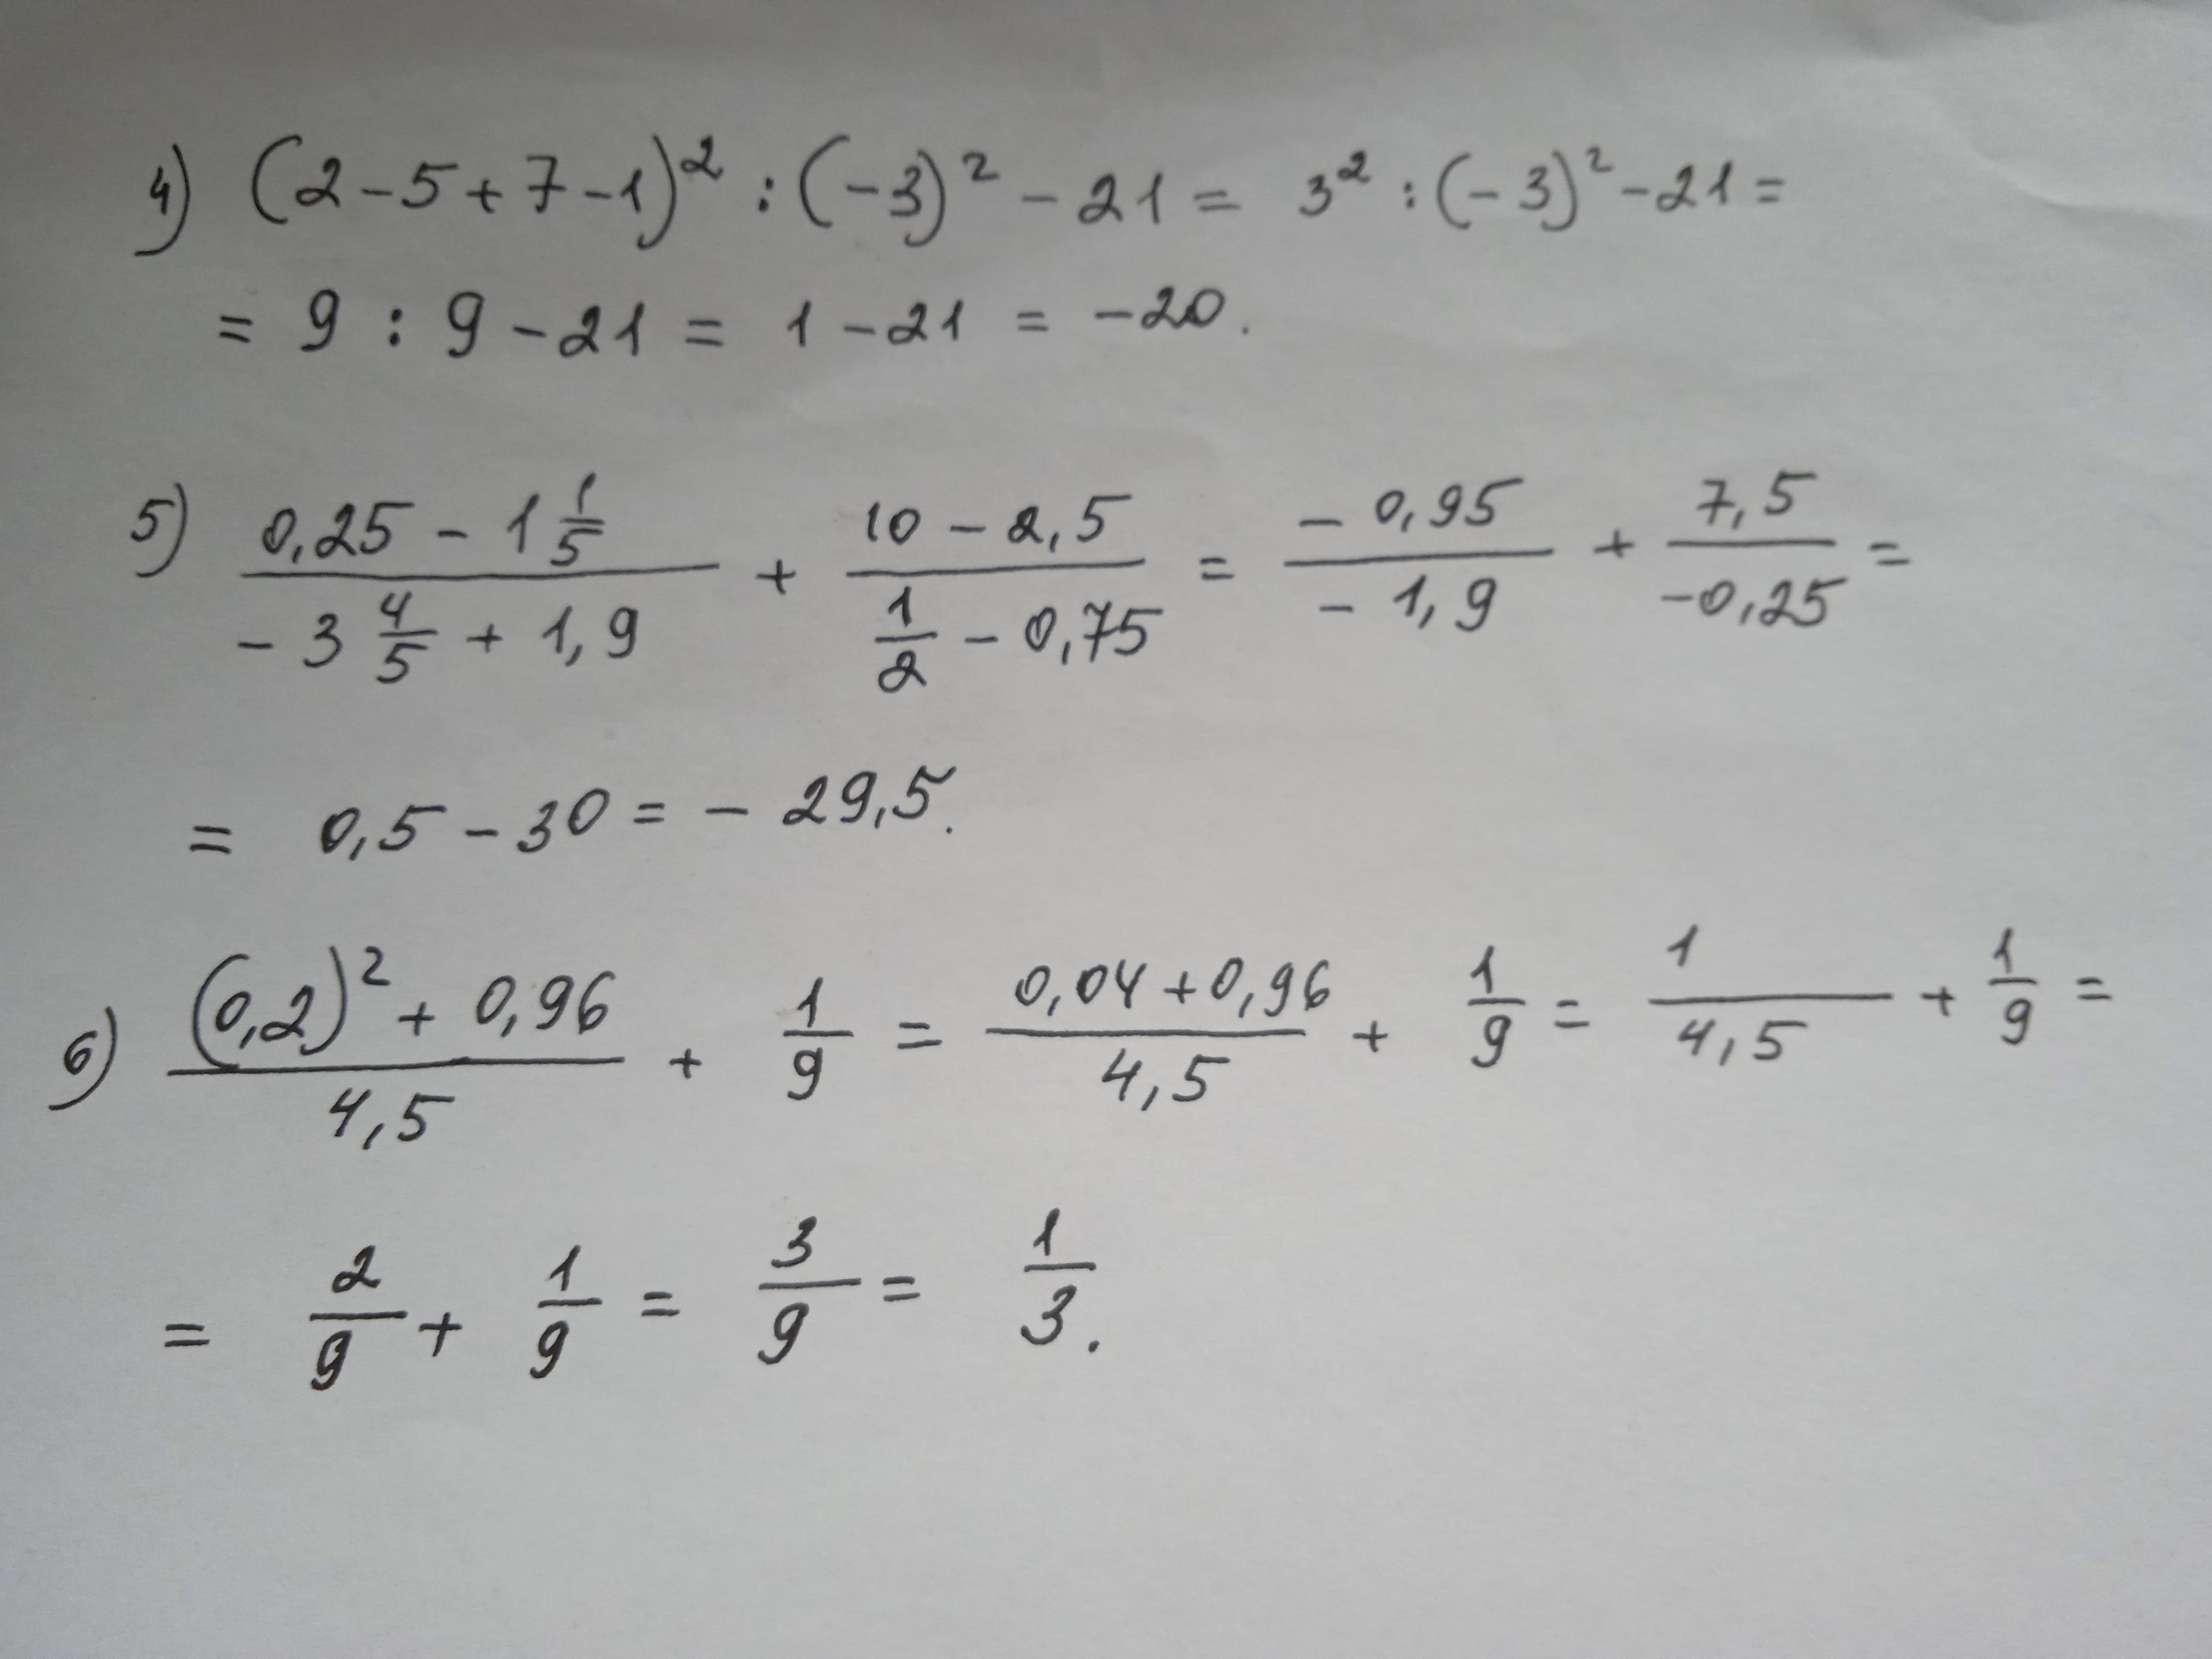 4) (2-5+7-1)² : (-3)² - 21 = 3² : (-3)² - 21 =
= 9 : 9 - 21 = 1 - 21 = -20.
5) \frac{0,25 - 1\frac{1}{5}}{-3\frac{4}{5} + 1,9} + \frac{10 - 2,5}{\frac{1}{2} - 0,75} = \frac{-0,95}{-1,9} + \frac{7,5}{-0,25} =
= 0,5 - 30 = -29,5.
6) \frac{(0,2)² + 0,96}{4,5} + \frac{1}{9} = \frac{0,04 + 0,96}{4,5} + \frac{1}{9} = \frac{1}{4,5} + \frac{1}{9} =
= \frac{2}{9} + \frac{1}{9} = \frac{3}{9} = \frac{1}{3}.